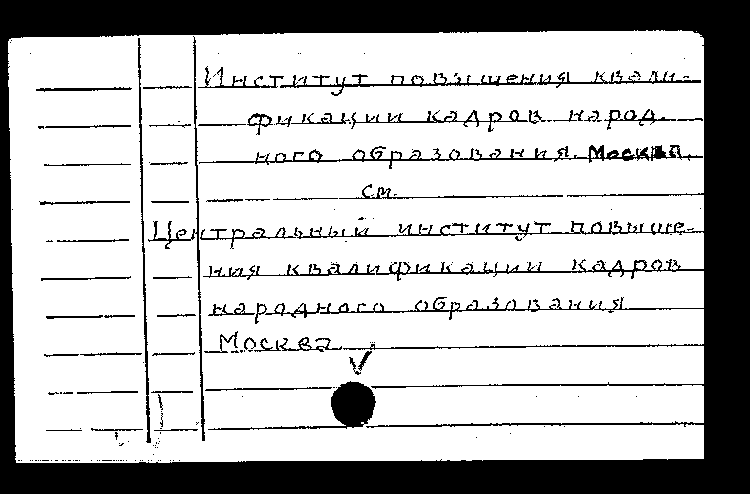 Институт повышения квали-
фикации кадров народ-
ного образования. Москва.
см.
Центральный институт повыше-
ния квалификации кадров
народного образования
Москва